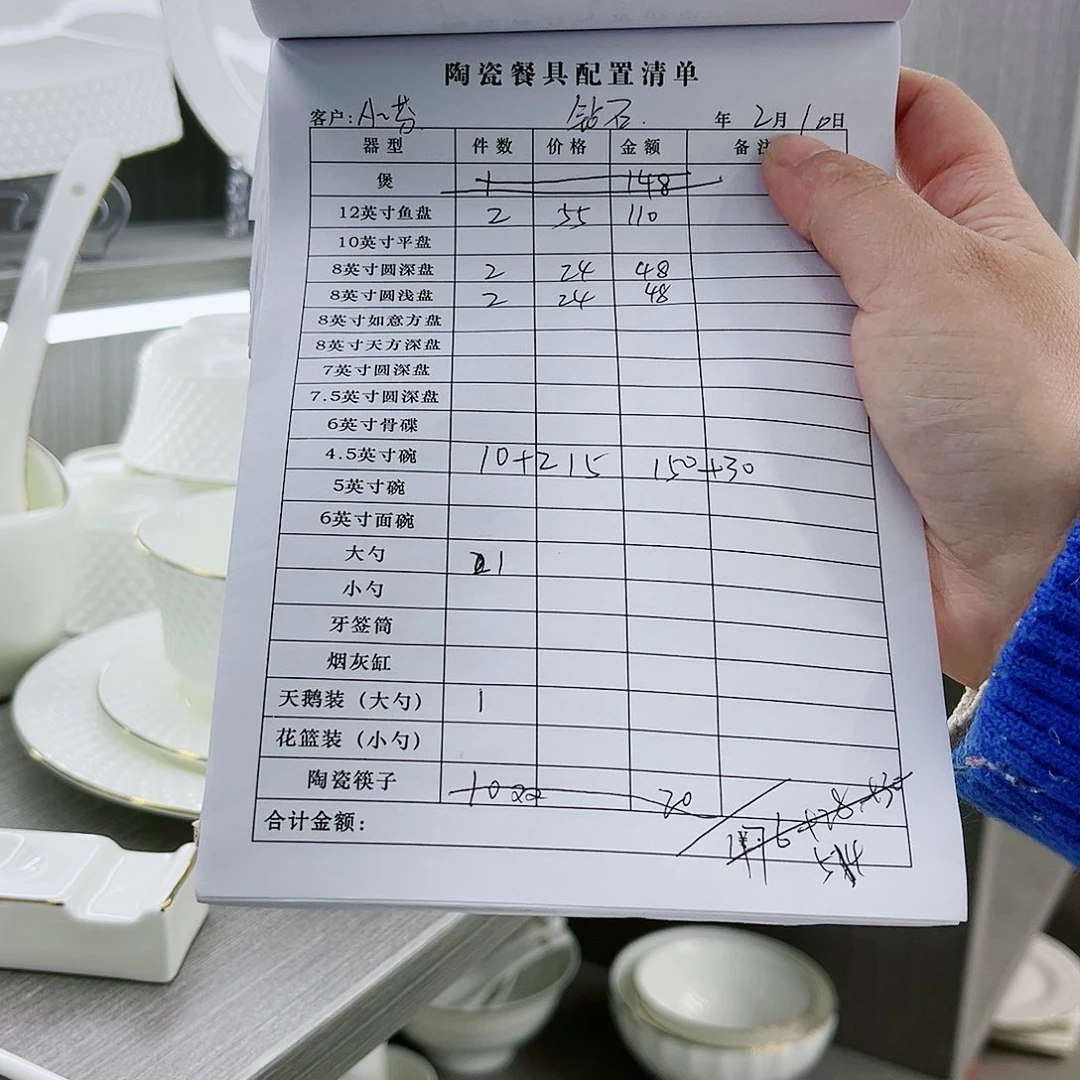 陶瓷餐具配置清单
客户: 钻石. 年 2月10日
器型 件数 价格 金额 备注
煲 1 148
12英寸鱼盘 2 55 110
10英寸平盘
8英寸圆深盘 2 24 48
8英寸圆浅盘 2 24 48
8英寸如意方盘
8英寸天方深盘
7英寸圆深盘
7.5英寸圆深盘
6英寸骨碟
4.5英寸碗 10+2 15 150+30
5英寸碗
6英寸面碗
大勺 1
小勺
牙签筒
烟灰缸
天鹅装（大勺） 1
花篮装（小勺）
陶瓷筷子 10 20
合计金额：